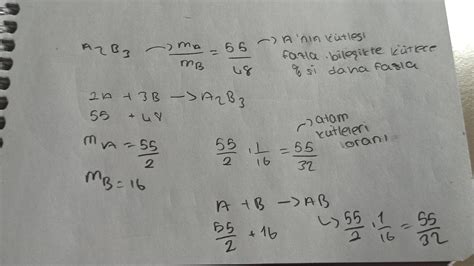 A₂B₃ → mA/mB = 55/48 → A'nın kütlesi
fazla. bileşikte kütlece
% si daha fazla
2A + 3B → A₂B₃
55 + 48
mA = 55/2
mB = 16
55/2 · 1/16 = 55/32 → atom
kütleleri
oranı
A + B → AB
55/2 + 16 ↳ 55/2 · 1/16 = 55/32